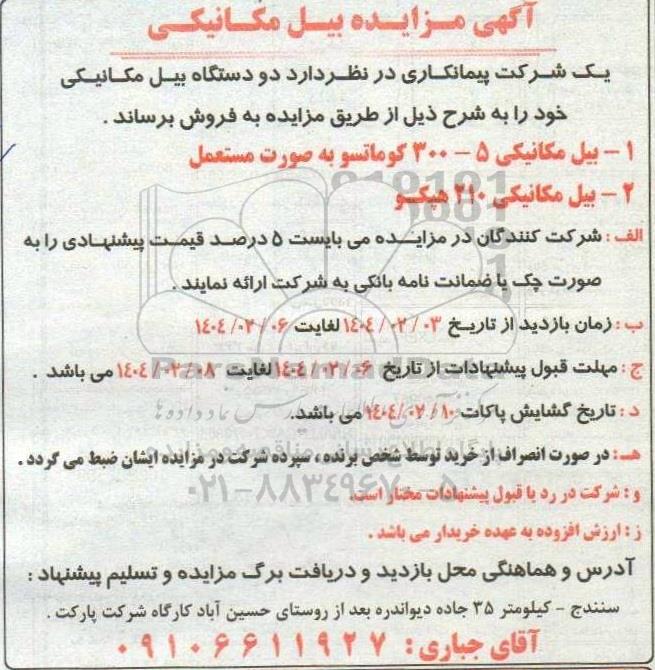 آگهی مزایده بیل مکانیکی
یک شرکت پیمانکاری در نظر دارد دو دستگاه بیل مکانیکی
خود را به شرح ذیل از طریق مزایده به فروش برساند .
۱ - بیل مکانیکی ۵ - ۳۰۰ کوماتسو به صورت مستعمل
۲ - بیل مکانیکی ۲۱۰ هپکو
الف : شرکت کنندگان در مزایده می بایست ۵ درصد قیمت پیشنهادی را به
صورت چک یا ضمانت نامه بانکی به شرکت ارائه نمایند .
ب : زمان بازدید از تاریخ ۱۴۰۴/۰۲/۰۳ لغایت ۱۴۰۴/۰۲/۰۶
ج : مهلت قبول پیشنهادات از تاریخ ۱۴۰۴/۰۲/۰۶ لغایت ۱۴۰۴/۰۲/۰۸ می باشد .
د : تاریخ گشایش پاکات ۱۴۰۴/۰۲/۱۰ می باشد.
هـ : در صورت انصراف از خرید توسط شخص برنده ، سپرده شرکت در مزایده ایشان ضبط می گردد .
و : شرکت در رد یا قبول پیشنهادات مختار است.
ز : ارزش افزوده به عهده خریدار می باشد .
آدرس و هماهنگی محل بازدید و دریافت برگ مزایده و تسلیم پیشنهاد :
سنندج - کیلومتر ۳۵ جاده دیواندره بعد از روستای حسین آباد کارگاه شرکت پارکت .
آقای جباری : ۰۹۱۰۶۶۱۱۹۲۷
ParsNamadData
۰۲۱-۸۸۳۴۹۶۷۰-۵